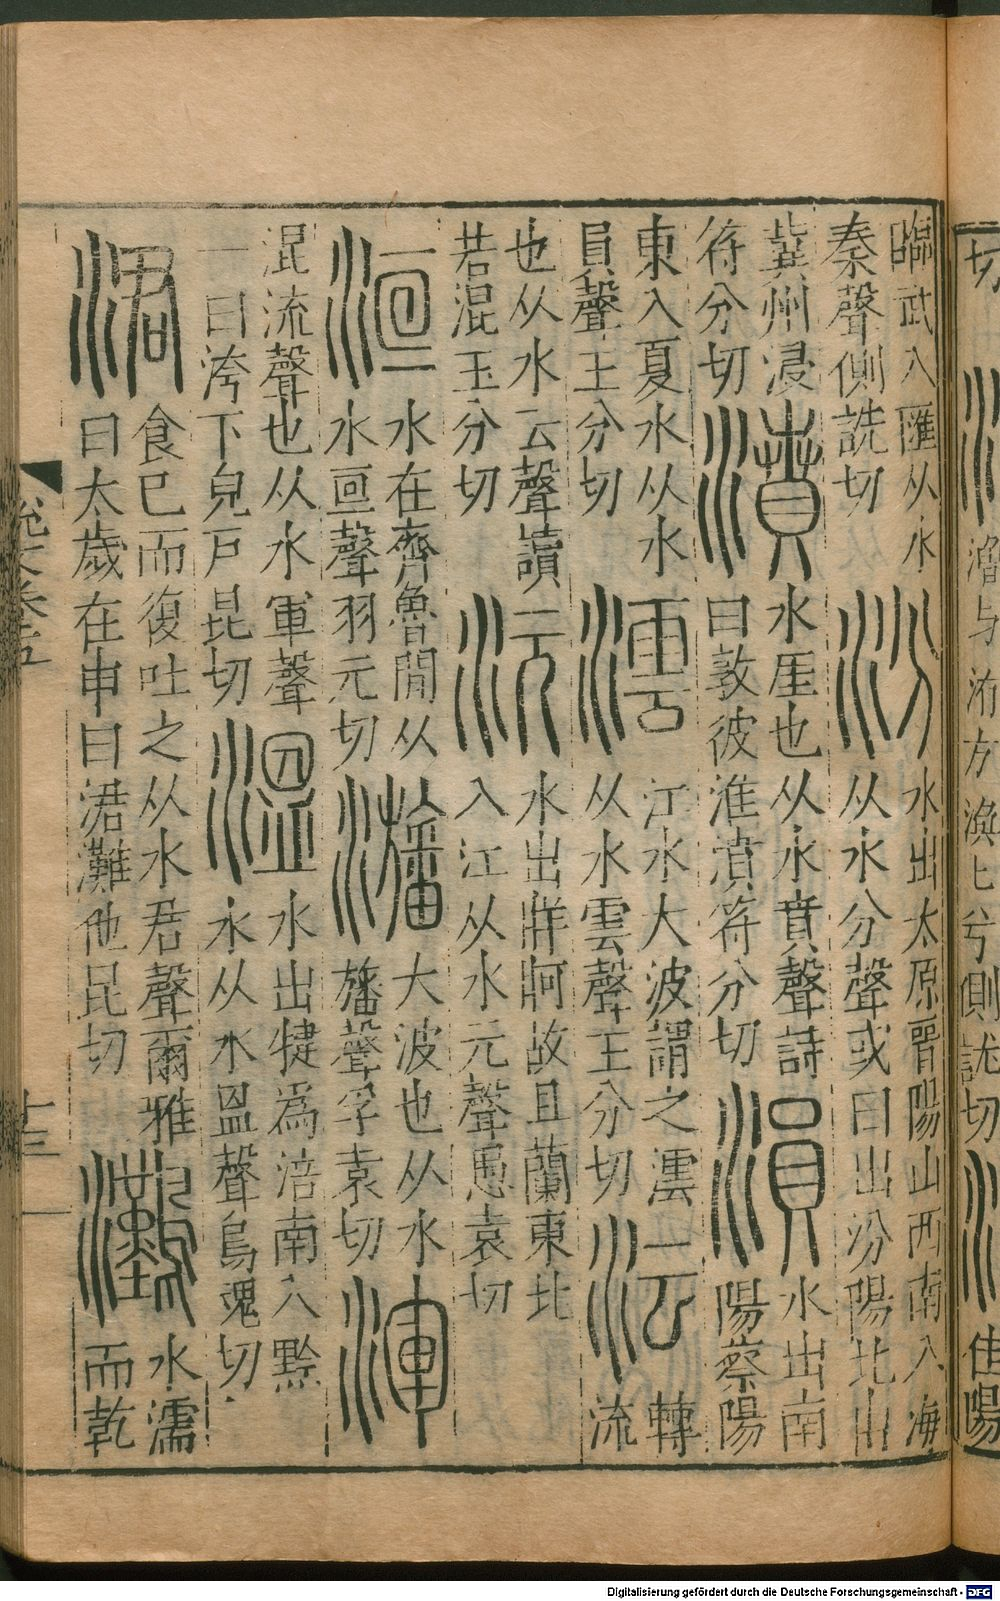 切
潧与洧方渙兮側詵切
陽
臨武入匯从水
秦聲側詵切
汾
水出太原晉陽山西南入海
从水分聲或曰出汾陽北山
冀州浸
符分切
濆
水厓也从水賁聲詩
曰敦彼淮濆符分切
溳
水出南
陽蔡陽
東入夏水从水
員聲王分切
澐
江水大波謂之澐
从水雲聲王分切
沄
轉
流
也从水云聲讀
若混玉分切
沅
水出牂牁故且蘭東北
入江从水元聲愚袁切
洹
水在齊魯間从
水亘聲羽元切
大波也从水
旛聲孚袁切
渾
混流聲也从水軍聲
一曰洿下皃戶昆切
溫
水出犍爲涪南入黔
水从水𥁕聲烏魂切
涒
食已而復吐之从水君聲爾雅
曰太歲在申曰涒灘他昆切
灘
水濡
而乾
十三
Digitalisierung gefördert durch die Deutsche Forschungsgemeinschaft - DFG